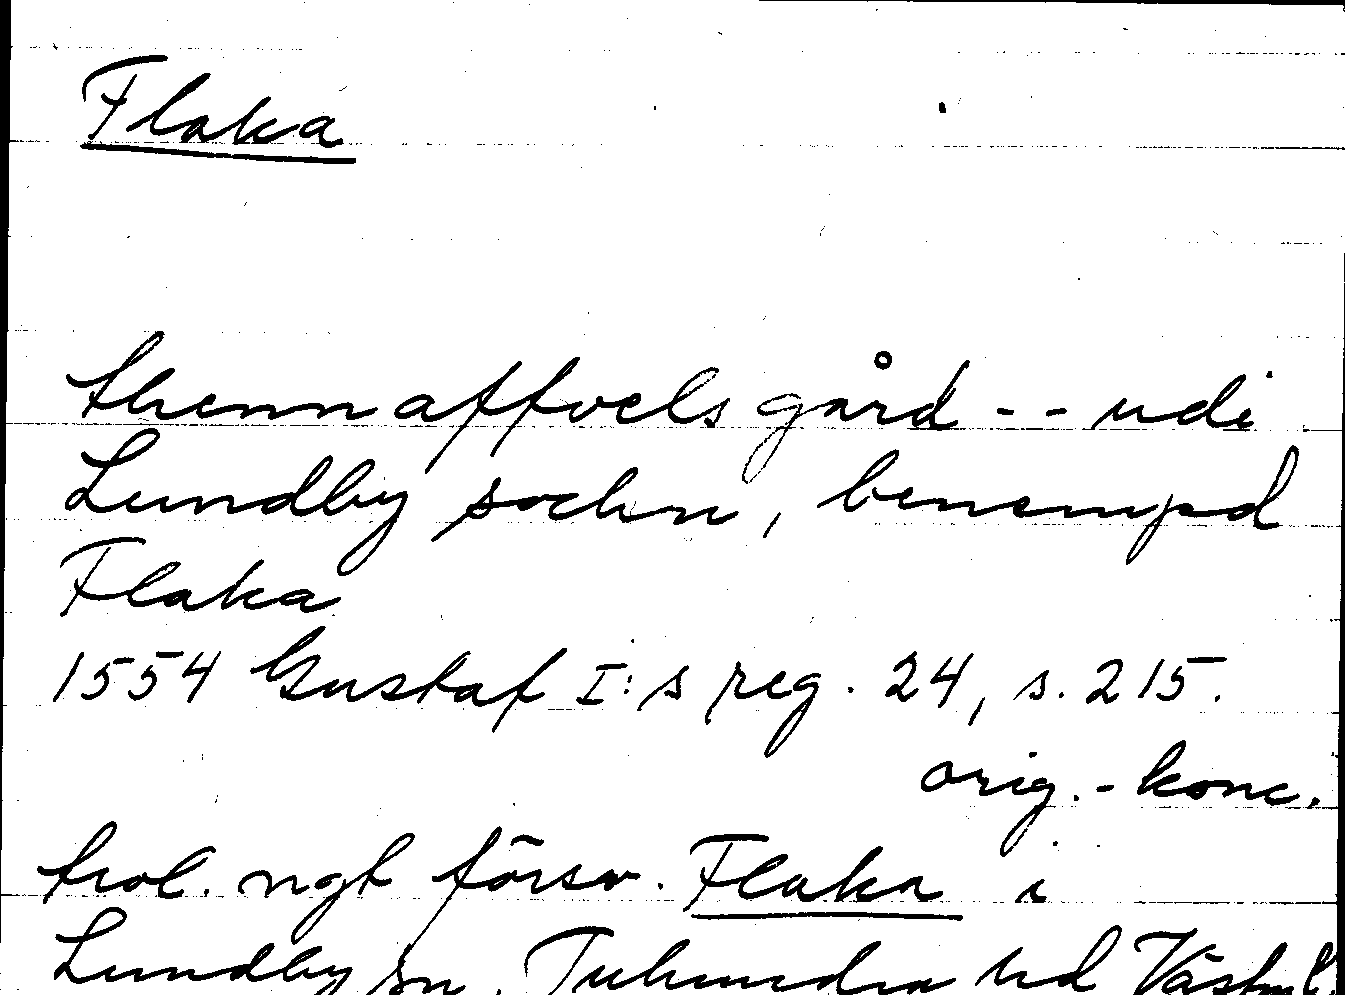 Flaka
thenn affvels gård -- udi
Lundby sochn, benempd
Flaka
1554 Gustaf I:s reg. 24, s. 215.
orig.-konc.
trol. ngt försv. Flaka i
Lundby sn, Tuhundra hd Västml.